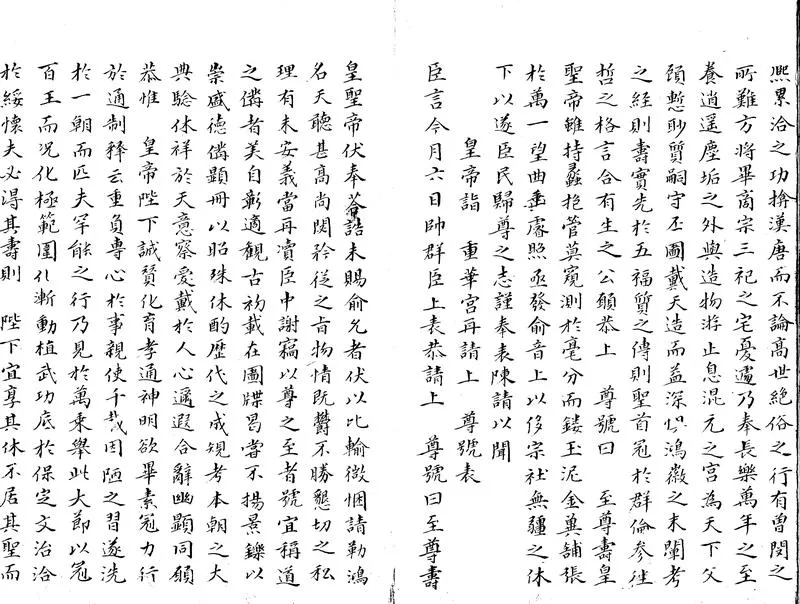 熈累洽之功揜漢唐而不論髙世絶俗之行有曽閔之
所難方將畢髙宗三祀之宅憂遽乃奉長樂萬年之至
養逍遥塵垢之外與造物游止息混元之宫為天下父
顧慙眇質嗣守丕圖戴天造而益深惧鴻徽之未闡考
之経則壽實先於五福質之傳則聖首冠於群倫参徃
哲之格言合有生之公願恭上 尊號曰 至尊壽皇
聖帝雖持蠡挹管莫窺測於毫分而鏤玉泥金兾舗張
於萬一望曲垂睿照亟發俞音上以侈宗社無疆之休
下以遂臣民歸尊之志謹奉表陳請以聞
皇帝詣 重華宫再請上 尊號表
臣言今月六日帥群臣上表恭請上 尊號曰至尊壽
皇聖帝伏奉荅誥未賜俞允者伏以比輸微悃請勒鴻
名天聽甚髙尚閟矜從之旨物情既欝不勝懇切之私
理有未安義當再凟臣中謝竊以尊之至者號宜稱道
之備者美自彰適觀古初載在圖牒曷嘗不揚景鑠以
崇盛德備顯冊以昭殊休酌歴代之成規考本朝之大
典驗休祥於天意察愛戴於人心遐遐合辭幽顯同願
恭惟 皇帝陛下誠贊化育孝通神明欲畢素冠力行
於通制釋云重負專心於事親使千載因陋之習遂洗
於一朝而匹夫罕能之行乃見於萬乗舉此大節以冠
百王而况化極範圍仁漸動植武功底於保定文治洽
於綏懷夫必得其壽則 陛下宜享其休不居其聖而